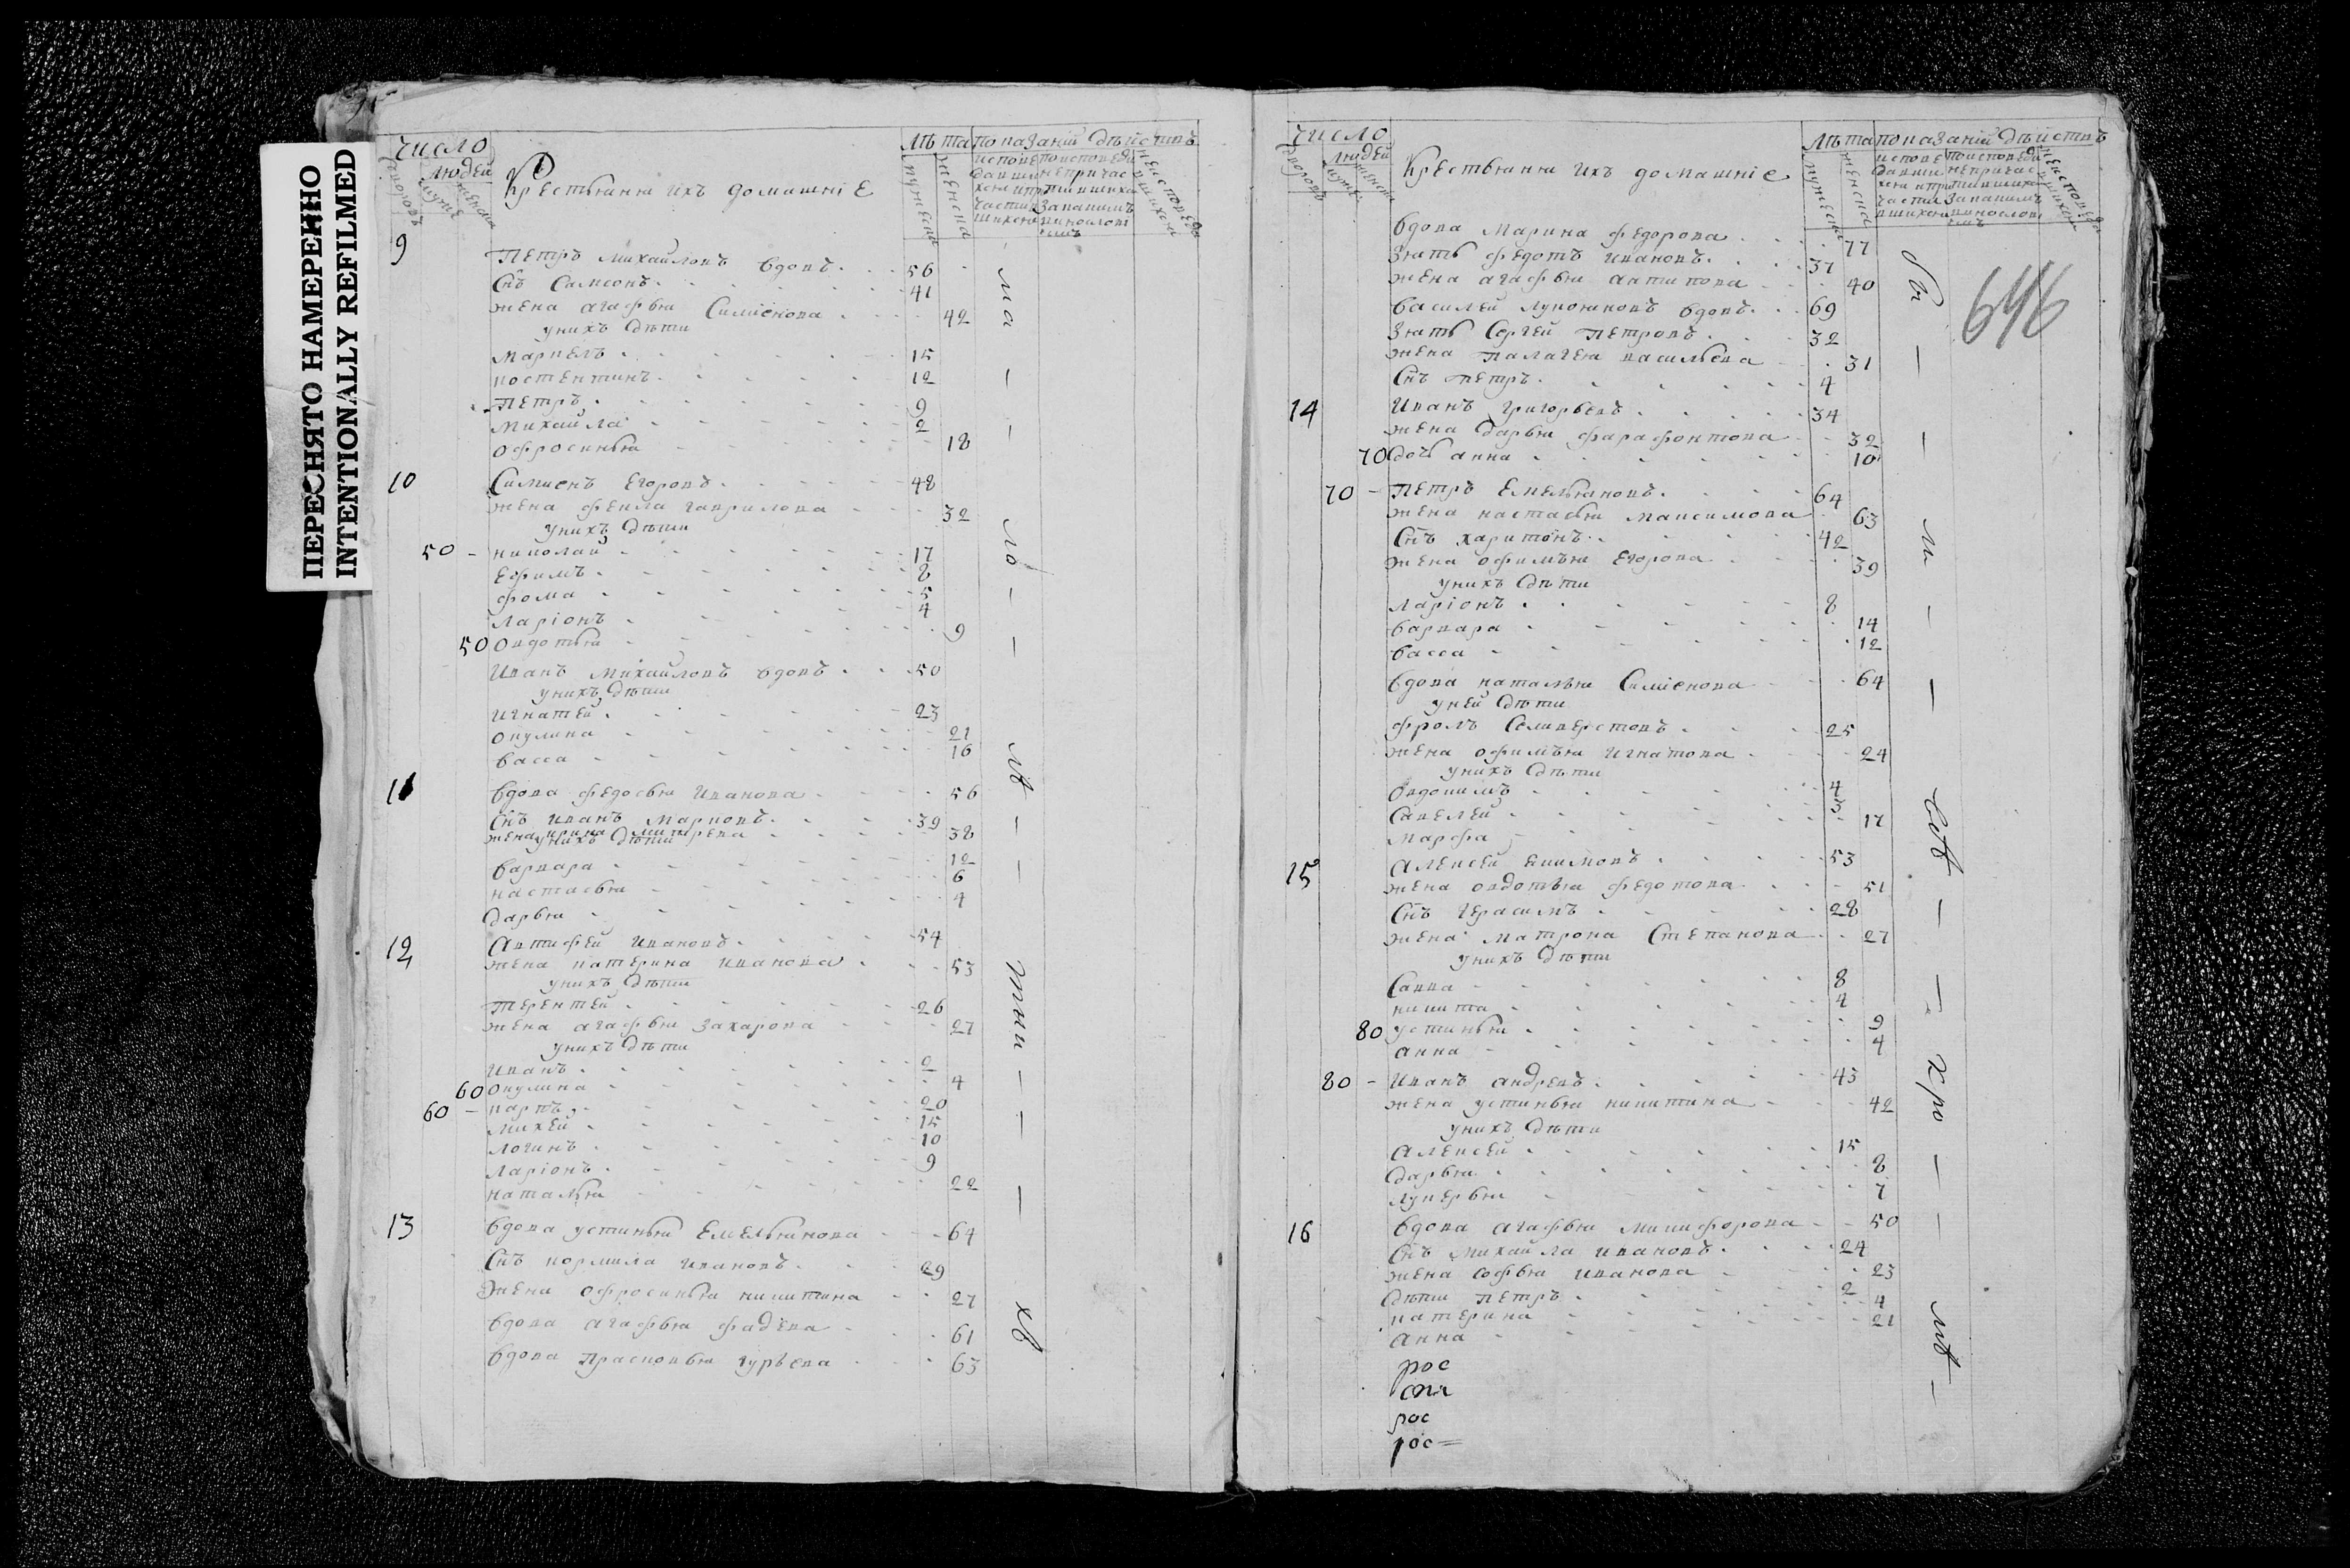 ПЕРЕСНЯТО НАМЕРЕННО
INTENTIONALLY REFILMED
число
людей
Крестьяня ихъ домашніе
лѣта показаніи дѣйствъ
9
Петръ михайловъ вдовъ 56
Снъ Симеонъ 41
жена агафья Симиенова 42
уних дѣти
Маркелъ 15
костентинъ 12
Петръ 9
михайла 2
офросинья 18
10 Симиенъ Егоровъ 48
жена фекла гаврилова 32
унихъ дѣти
50 - николай 17
Ефимъ 8
фома 5
ларіонъ 4
50 Овдотья 9
Иванъ михайловъ вдовъ 50
унихъ дѣти
игнатей 23
окулина 21
васса 16
11 вдова федосья Иванова 56
Снъ иванъ Марковъ 39
жена ирина митрева 38
унихъ дѣти
варвара 12
настасья 6
дарья 4
12 Автифей ивановъ 54
жена катерина иванова 53
унихъ дѣти
терентей 26
жена агафья захарова 27
унихъ дѣти
иванъ 2
60 окулина 4
60 - карпъ 20
михей 15
логинъ 10
ларіонъ 9
наталья 22
13 вдова устинья Емельянова 64
Снъ кормила ивановъ 29
жена офросинья никитина 27
вдова агафья фадѣева 61
вдова Прасковья гурьева 63
число
людей
Крестьяня ихъ домашніе
лѣта показаніи дѣйствъ
646
вдова Марина федорова 77
Зять федотъ ивановъ 37
жена агафья антипова 40
василей лукояновъ вдовъ 69
Зять Сергей Петровъ 32
жена палагея васильева 31
Снъ петръ 4
14 Иванъ григорьевъ 34
жена дарья фарафонтова 32
70 дочь анна 10
70 - Петръ Емельяновъ 64
жена настасья максимова 63
Снъ харитонъ 42
жена офимья Егорова 39
унихъ дѣти
ларіонъ 8
варвара 14
васса 12
вдова наталья Симиенова 64
уней дѣти
фролъ Селиверстовъ 25
жена офимья игнатова 24
унихъ дѣти
Овдокимъ 4
Савелей 3
марфа 17
15 Алексей екимовъ 53
жена овдотья федотова 51
Снъ герасимъ 28
жена матрона Степанова 27
унихъ дѣти
Савва 8
никита 4
80 устинья 9
анна 4
80 - Иванъ андревъ 43
жена устинья никитина 42
унихъ дѣти
Алексей 15
дарья 8
лукерья 7
16 вдова агафья микифорова 50
Снъ михайла ивановъ 24
жена софья иванова 23
дѣти петръ 2
катерина 4
анна 21
рос
рос
рос